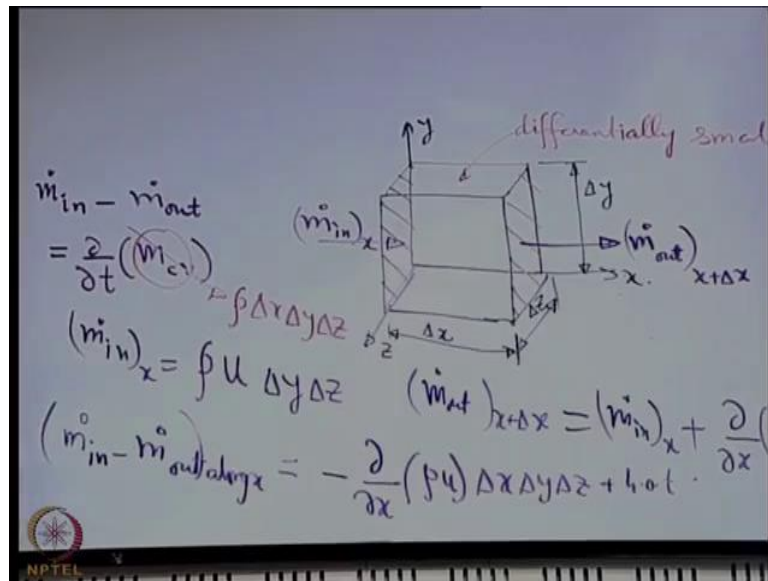 y
differentially smal
Δy
ṁin − ṁout
(ṁin)x
(ṁout)x+Δx
= ∂/∂t (mcv)
x.
ρΔxΔyΔz
Δx
z
(ṁin)x = ρu ΔyΔz
(ṁout)x+Δx = (ṁin)x + ∂/∂x (
(ṁin − ṁout)along x = − ∂/∂x (ρu) ΔxΔyΔz + h.o.t.
NPTEL